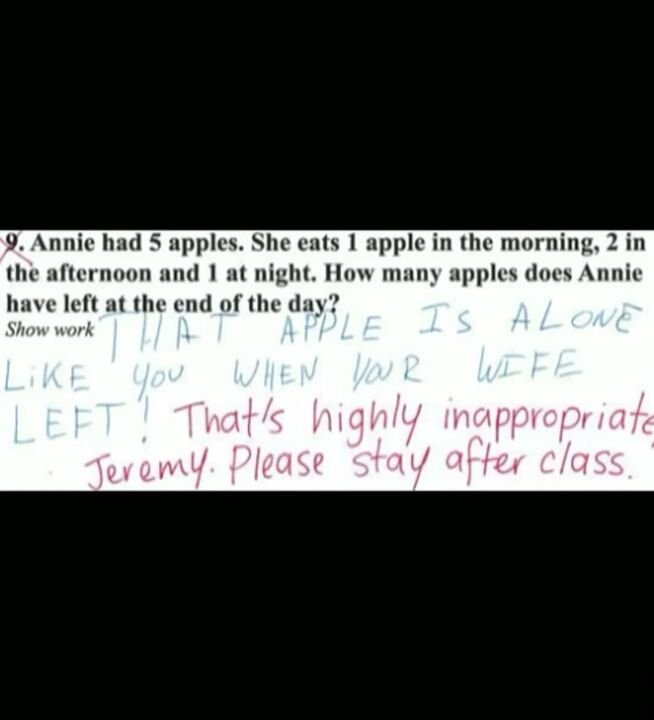 9. Annie had 5 apples. She eats 1 apple in the morning, 2 in
the afternoon and 1 at night. How many apples does Annie
have left at the end of the day?
Show work THAT APPLE IS ALONE
LiKE you WHEN YOUR WIFE
LEFT! That's highly inappropriate,
Jeremy. Please stay after class.